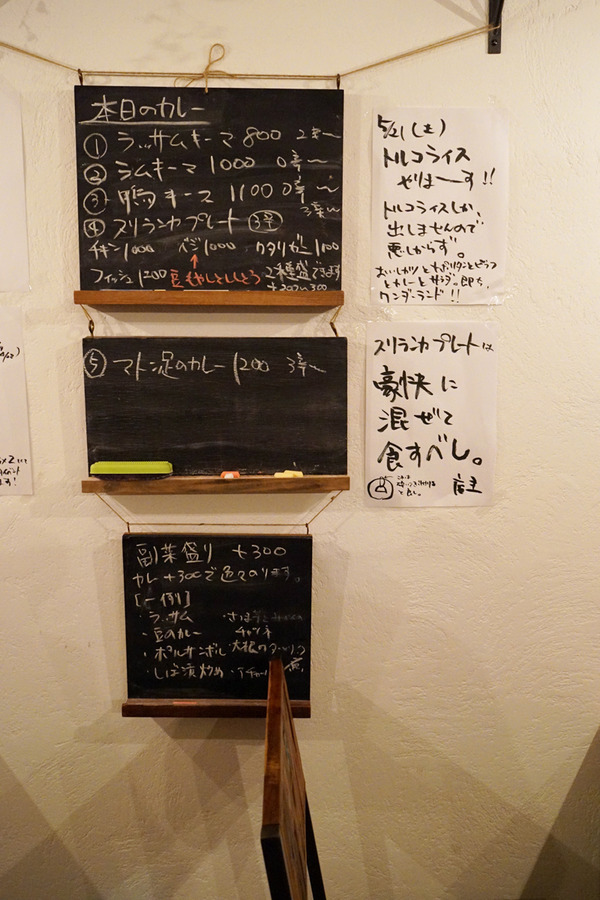 本日のカレー
① ラッサムキーマ 800 2辛〜
② ラムキーマ 1000 0辛〜
③ 鴨キーマ 1100 0辛〜
④ スリランカプレート 3辛 3辛〜
チキン1000 ベジ1000 ワタリガニ1100
フィッシュ1200 豆もやしとししとう 2種盛できます
+200〜300
⑤ トマト 1200 3辛〜
副菜盛り +300
カレー+300で色々のります。
[一例]
・ラッサム
・豆のカレー チャツネ
・ポルサンボル 大根の
・しば漬炒め
5/21(土)
トルコライス
やりまーす!!
トルコライスしか、
出しませんので
悪しからず。
ワンダーランド!!
スリランカプレートは
豪快に
混ぜて
食すべし。
店主